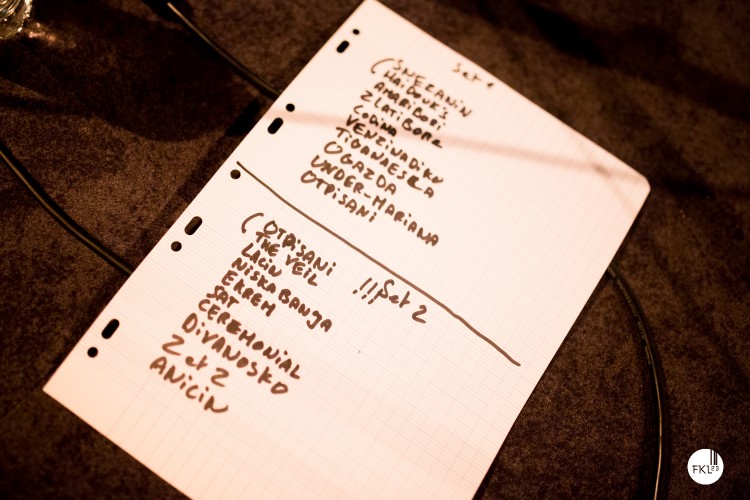 Set 1
( SNEZANIN
HAIDOUK'S
AMARIBORI
ZLATIBORE
CODINA
VENZINADIKU
TIGANAESCA
UGAZDA
UNDER-MARIANA
OTPISANI
!!! Set 2
( OTPISANI
THE VEIL
LACIN
NISKA BANJA
EKREM
SAT
CEREMONIAL
DIVANOSKO
2 et 2
ANICIN
FKL23